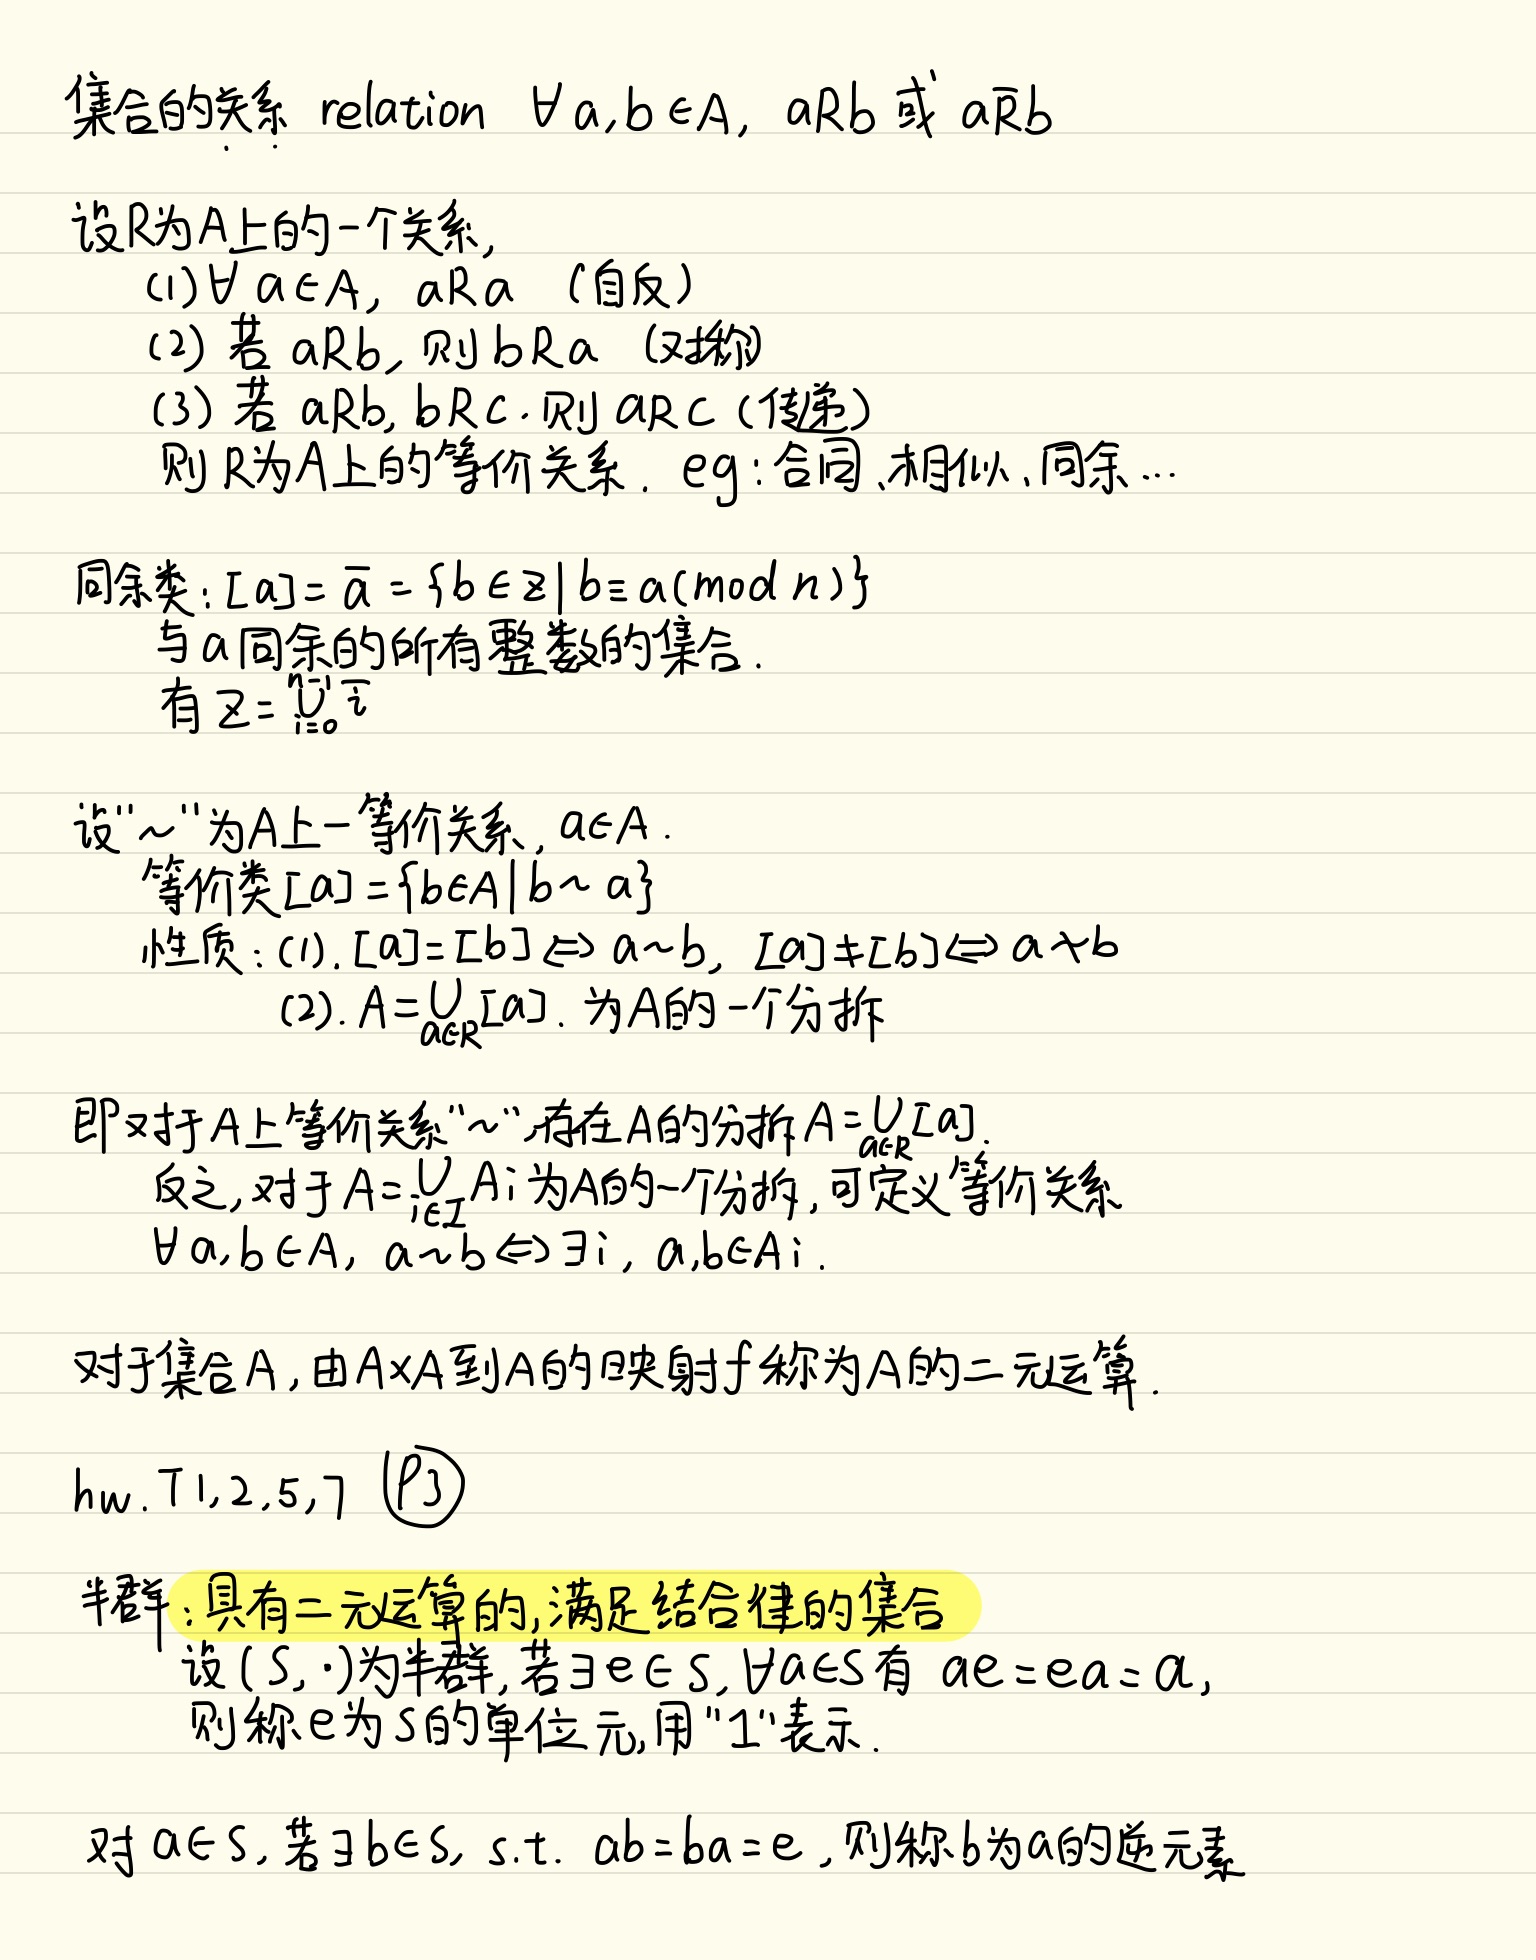 集合的关系 relation ∀a,b∈A, aRb 或 aR̄b
设R为A上的一个关系,
(1)∀a∈A, aRa (自反)
(2) 若 aRb, 则 bRa (对称)
(3) 若 aRb, bRc. 则 aRc (传递)
则 R为A上的等价关系. eg:合同、相似、同余...
同余类:[a]=ā={b∈Z|b≡a(mod n)}
与a同余的所有整数的集合.
有 Z=⋃_{i=0}^{n-1} ī
设"~"为A上一等价关系, a∈A.
等价类[a]={b∈A|b~a}
性质:(1).[a]=[b]⇔a~b, [a]≠[b]⇔a≁b
(2). A=⋃_{a∈R}[a]. 为A的一个分拆
即对于A上等价关系"~",存在A的分拆A=⋃_{a∈R}[a].
反之,对于A=⋃_{i∈I}Ai为A的一个分拆,可定义等价关系
∀a,b∈A, a~b⇔∃i, a,b∈Ai.
对于集合A,由A×A到A的映射f称为A的二元运算.
hw. T1,2,5,7 P3
半群:具有二元运算的,满足结合律的集合
设(S,·)为半群,若∃e∈S,∀a∈S有 ae=ea=a,
则称e为S的单位元,用"1"表示.
对a∈S,若∃b∈S, s.t. ab=ba=e,则称b为a的逆元素